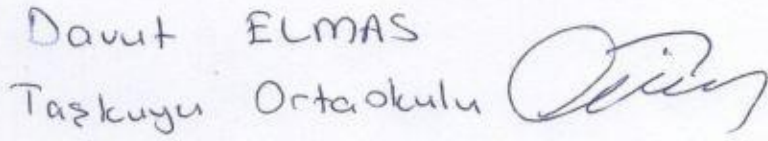 Davut ELMAS
Taşkuyu Ortaokulu